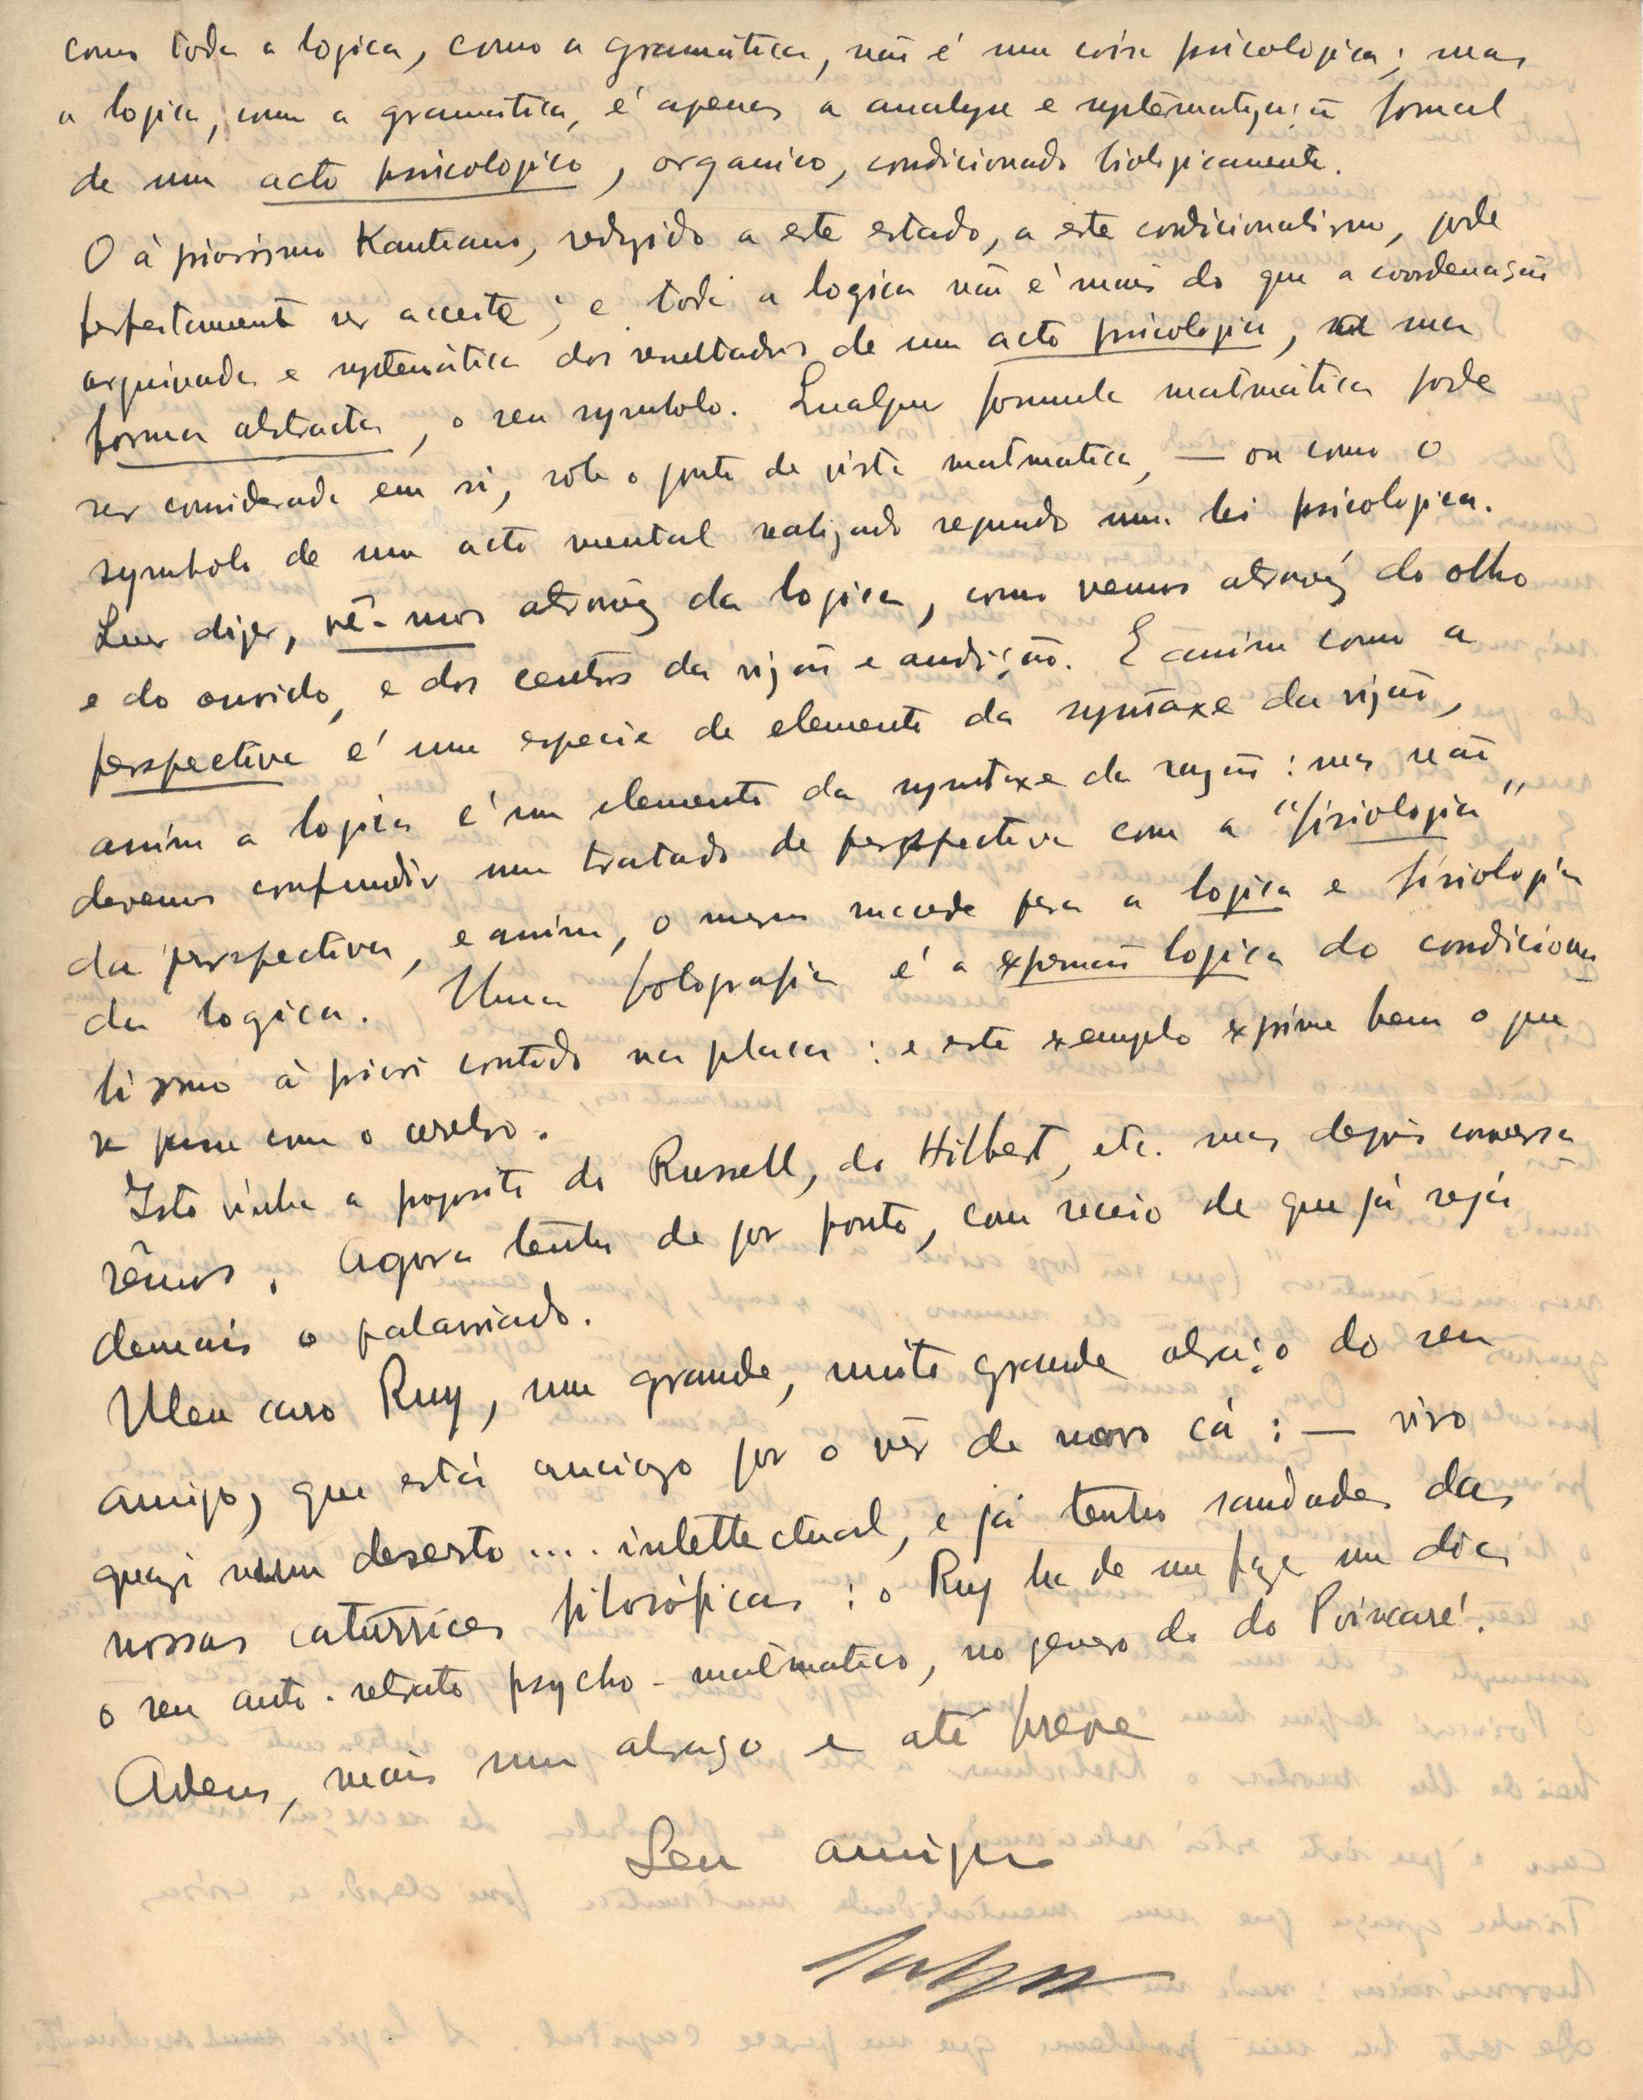 como toda a logica, como a gramática, não é uma coisa psicologica; mas
a logica, como a gramática, é apenas a analyse e systematização formal
de um acto psicologico, organico, condicionado biologicamente.
O à priorismo Kanteano, reduzido a este estado, a este condicionalismo, pode
perfeitamente ser acceite; e toda a logica não é mais do que a coordenação
arquivada e systemática dos resultados de um acto psicologico, na sua
forma abstracta, o seu symbolo. Qualquer formula matmática pode
ser considerada em si, sob o ponto de vista matmatica, — ou como o
symbolo de um acto mental realizado segundo uma lei psicologica.
Quer dizer, vê-mos atravéz da logica, como vemos atravéz do olho
e do ouvido, e dos centros da vizão e audição. E assim como a
perspectiva é uma especie de elemento da syntaxe da vizão,
assim a logica é um elemento da syntaxe da razão: mas não
devemos confundir um tratado de perspectiva com a "fisiologia"
da perspectiva, e assim, o mesmo sucede para a logica e fisiologia
da logica. Uma fotografia é a expressão logica do condiciona
lismo à priori contido na placa: e este exemplo exprime bem o que
se passa com o cerebro.
Isto vinha a proposito do Russell, do Hilbert, etc. mas depois conversa
rêmos. Agora tenho de por ponto, com receio de que já seja
demais o palavriado.
Meu caro Ruy, um grande, muito grande abraço do seu
amigo, que está ancioso por o vêr de novo cá: — vivo
quazi num deserto .... intellectual, e já tenho saudades das
nossas caturrices filosóficas: o Ruy ha de me fazer um dia
o seu auto-retrato psycho-matmatico, no genero do do Poincaré!
Adeus, mais um abraço e até breve
Seu amigo